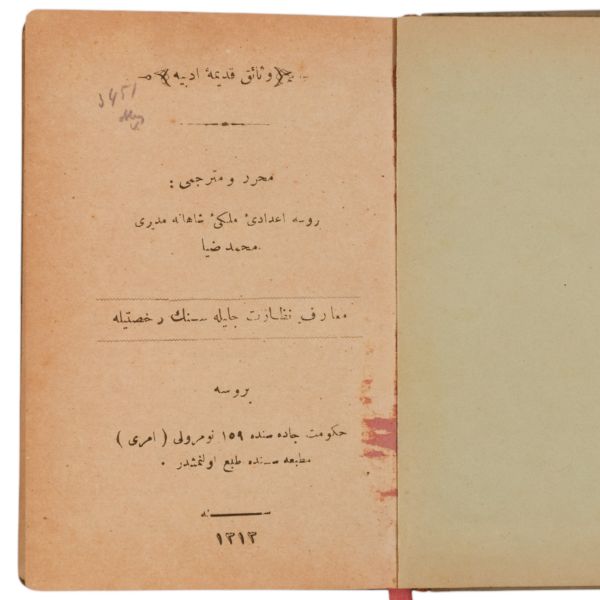 وثائق قديمۀ ادبيه
محرر و مترجمى :
بروسه اعدادئ ملكئ شاهانه مديرى
محمد ضيا
معارف نظارت جليله سنك رخصتيله
بروسه
حكومت جاده سنده ١٥٩ نومرولى ( امرى )
مطبعه سنده طبع اولنمشدر .
سنه
١٣١٣